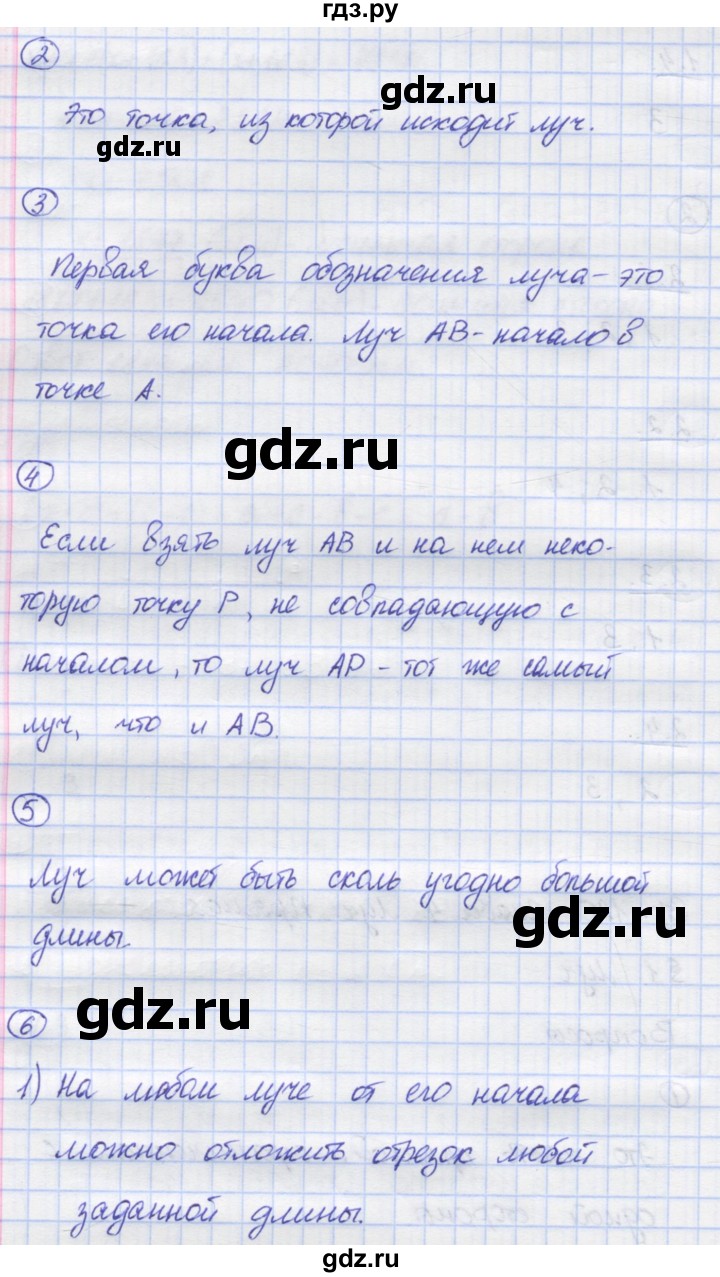 гдз.ру
2
Это точка, из которой исходит луч.
gdz.ru
gdz.ru
3
Первая буква обозначения луча – это
точка его начала. Луч АВ – начало в
точке А.
gdz.ru
4
Если взять луч АВ и на нем неко-
торую точку Р, не совпадающую с
началом, то луч АР – тот же самый
луч, что и АВ.
5
Луч может быть сколь угодно большой
длины.
gdz.ru
gdz.ru
6
1) На любом луче от его начала
можно отложить отрезок любой
заданной длины.
gdz.ru